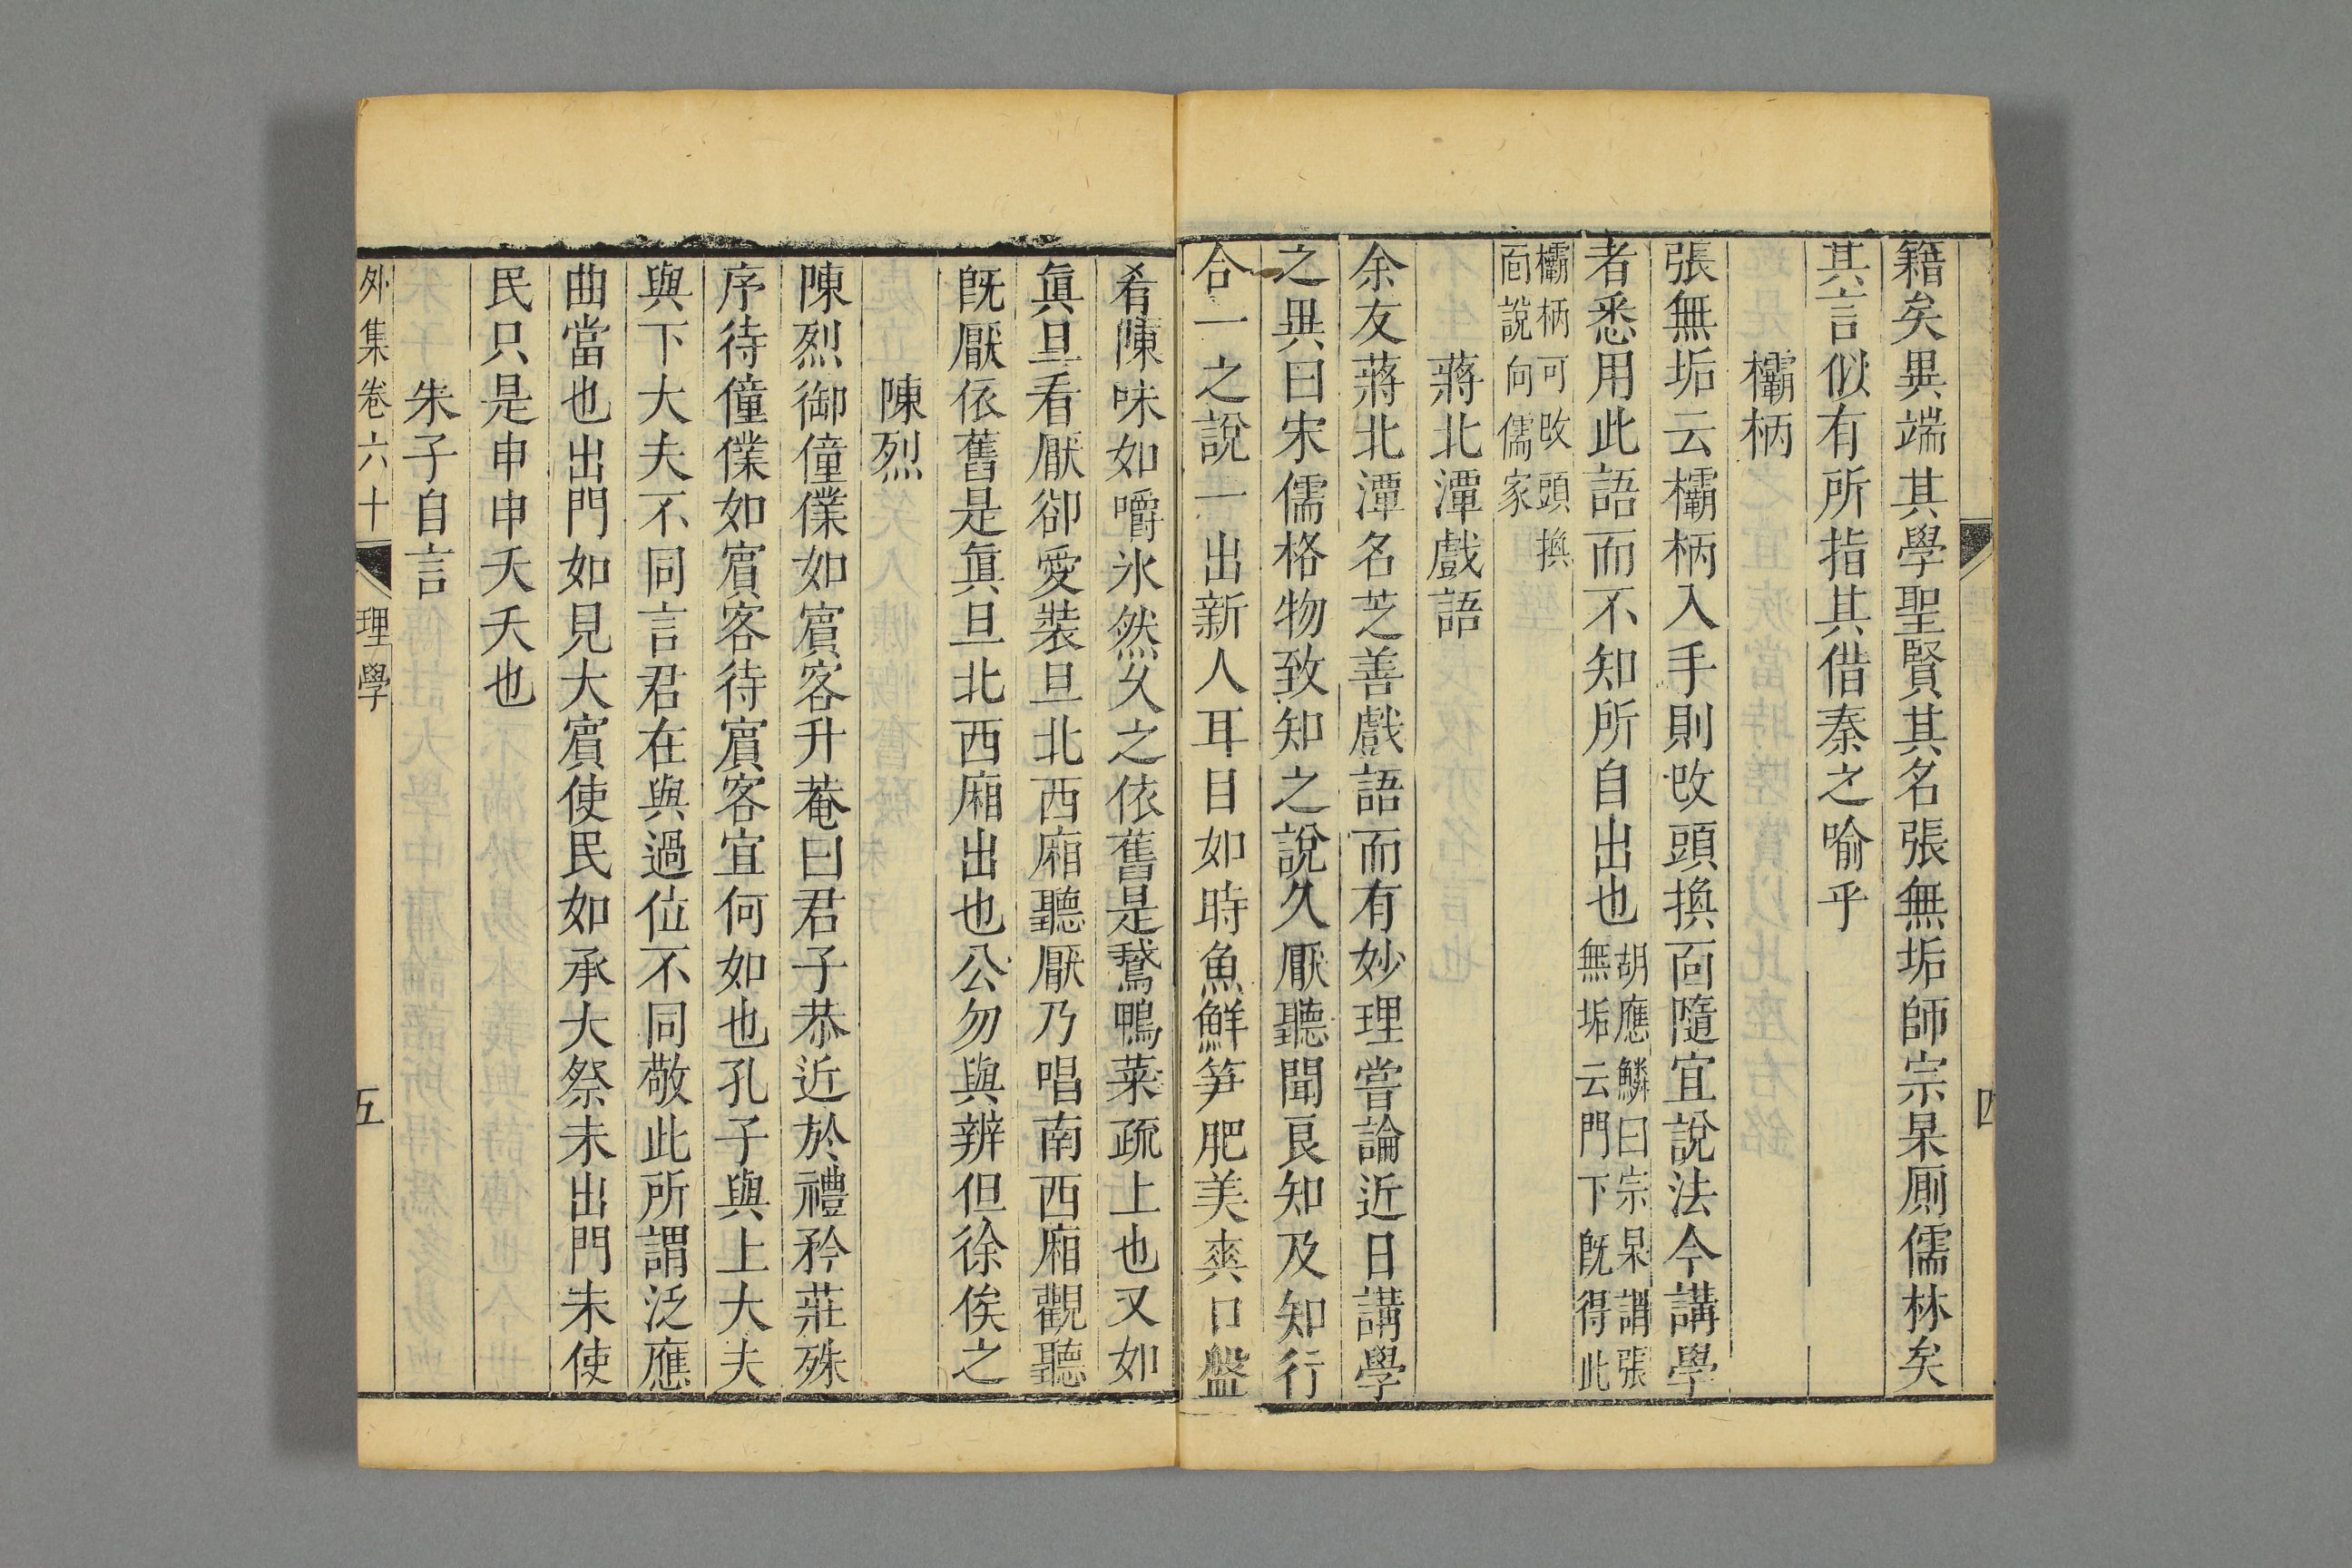 籍矣異端其學聖賢其名張無垢師宗杲厠儒林矣
其言似有所指其借秦之喻乎
欛柄
張無垢云欛柄入手則改頭換面隨宜說法今講學
者悉用此語而不知所自出也
胡應鱗曰宗杲謂張
無垢云門下旣得此
欛柄可改頭換
面說向儒家
蔣北潭戲語
余友蔣北潭名芝善戲語而有妙理嘗論近日講學
之異曰宋儒格物致知之說久厭聽聞良知及知行
合一之說一出新人耳目如時魚鮮笋肥美爽口盤
四
肴陳味如嚼氷然久之依舊是鵞鴨菜疏上也又如
眞旦看厭卻愛裝旦北西廂聽厭乃唱南西廂觀聽
旣厭依舊是眞旦北西廂出也公勿與辨但徐俟之
陳烈
陳烈御僮僕如賔客升菴曰君子恭近於禮矜莊殊
序待僮僕如賔客待賔客宜何如也孔子與上大夫
與下大夫不同言君在與過位不同敬此所謂泛應
曲當也出門如見大賔使民如承大祭未出門未使
民只是申申夭夭也
朱子自言
外集卷六十
理學
五